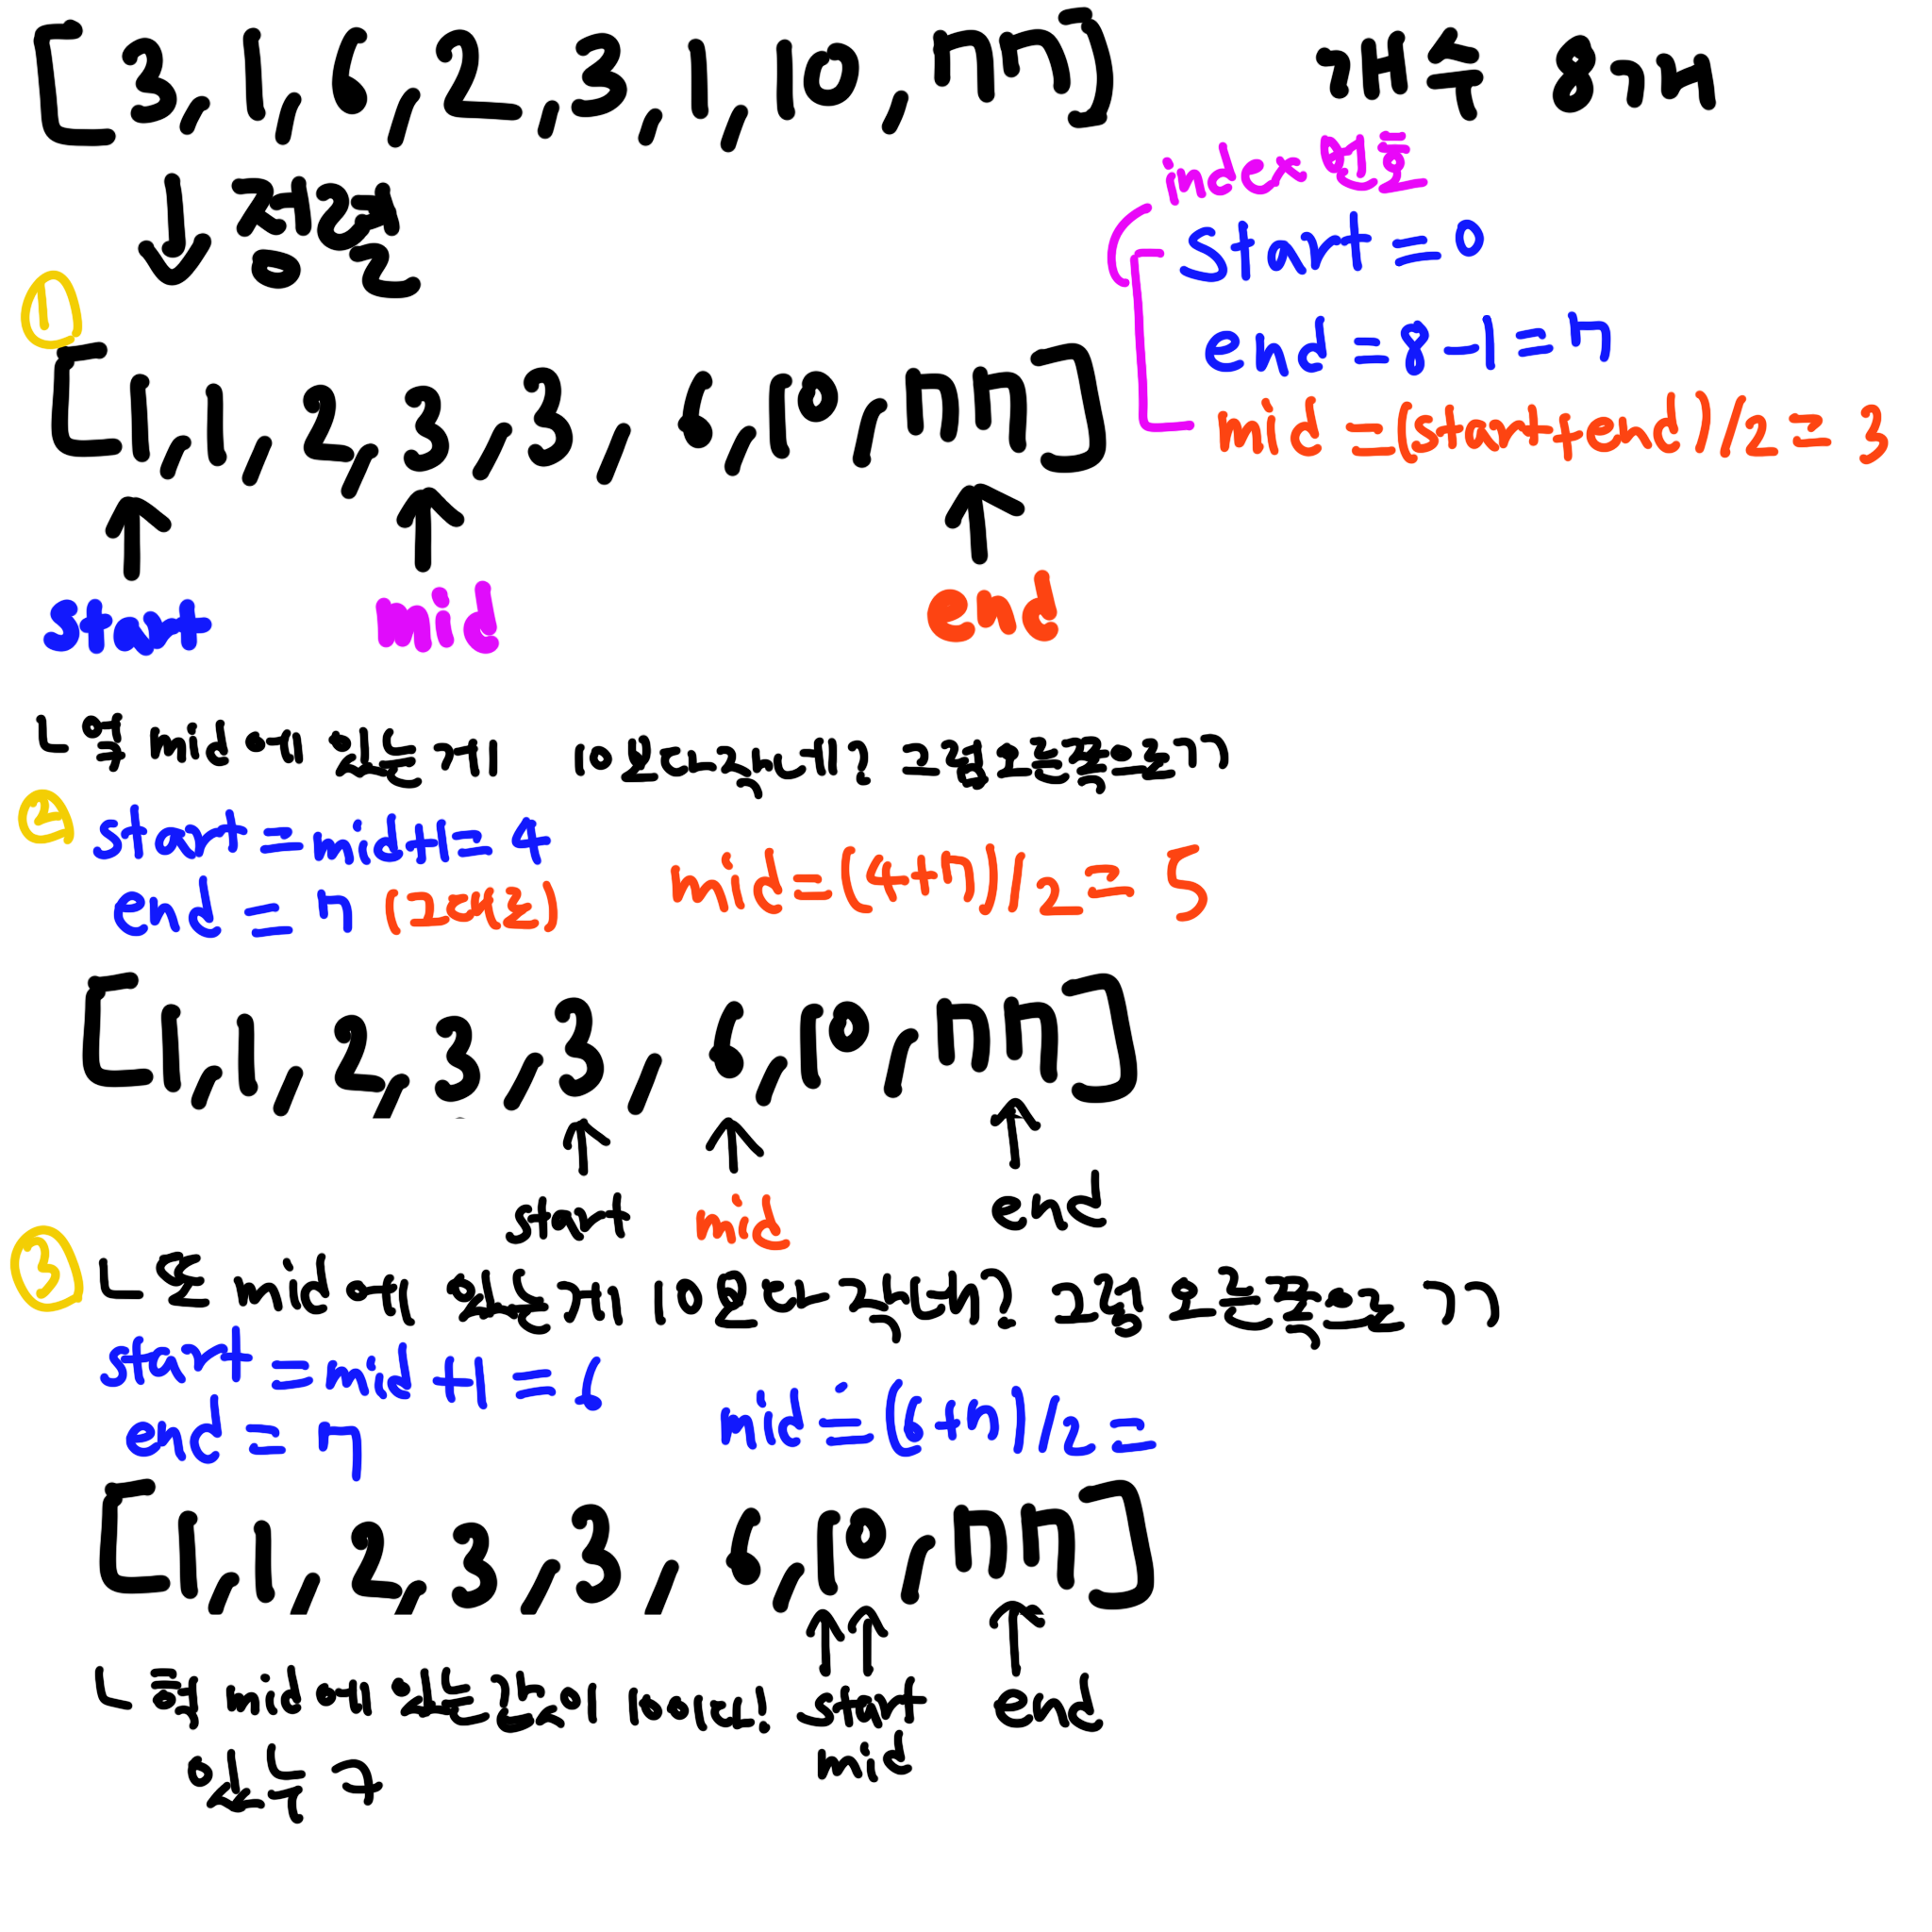 [3,1,6,2,3,1,10,77] 개수 8개
↓ 정렬
index 번호
start=0
end=8-1=7
mid=(start+end)/2=3
①
[1,1,2,3,3,6,10,77]
start mid end
ㄴ 음 mid에 있는게 10보다 작네? 그럼 오른쪽으로 ㄱㄱ
②
start=mid+1=4
end=7(그대로)
mid=(4+7)/2=5
[1,1,2,3,3,6,10,77]
start mid end
③
ㄴ 음 mid에 있는게 10보다 작네? 그럼 오른쪽으로 ㄱㄱ
start=mid+1=6
end=7
mid=(6+7)/2=
[1,1,2,3,3,6,10,77]
ㄴ mid에 있는값이 10이다! start end
mid
완두ㅋ